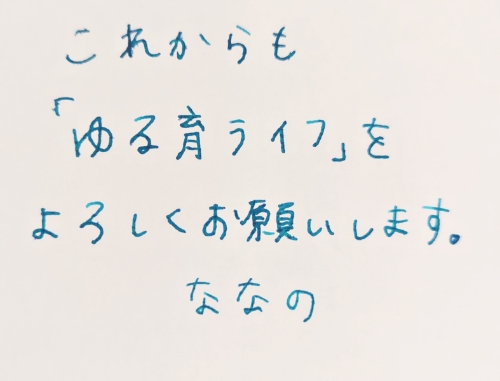 これからも
「ゆる育ライフ」を
よろしくお願いします。
ななの